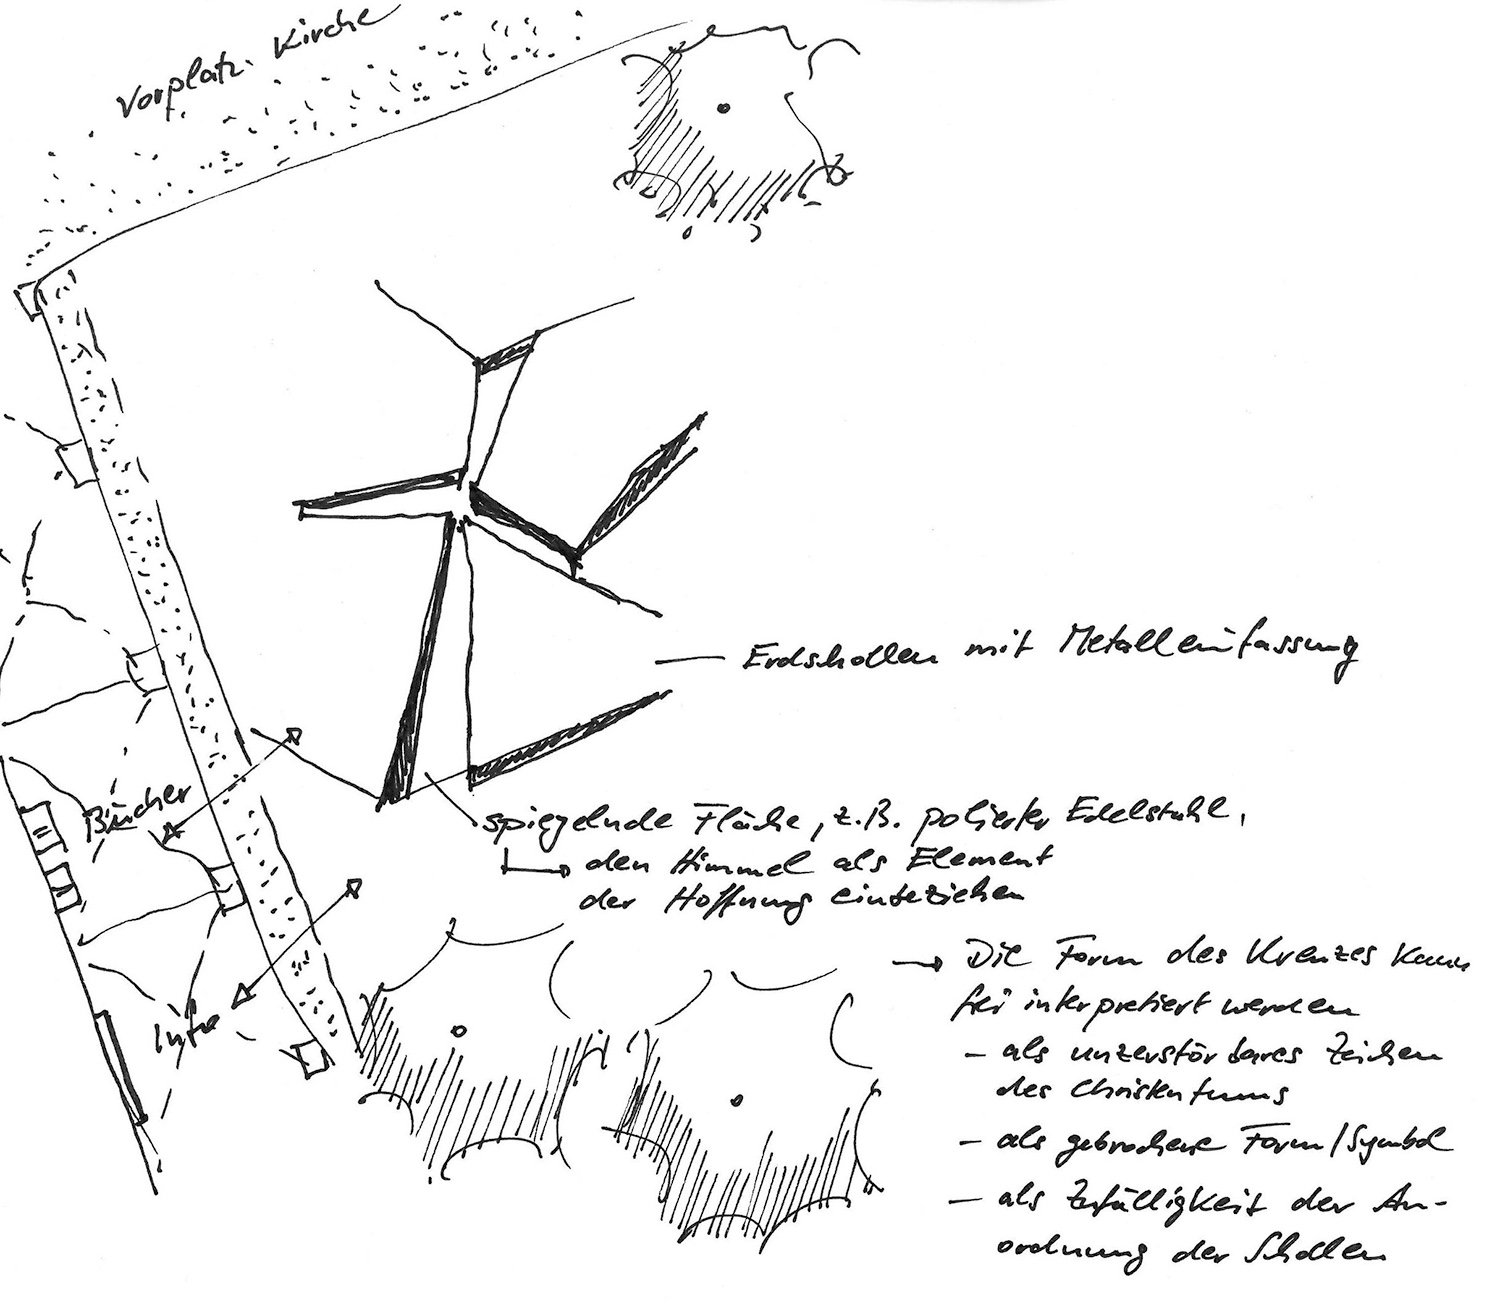 Vorplatz Kirche
Erdshollen mit Metalleinfassung
Bücher
spiegelnde Fläche, z.B. polierter Edelstahl,
den Himmel als Element
der Hoffnung einbeziehen
Info
Die Form des Kreuzes kann
frei interpretiert werden
- als unzerstörbares Zeichen
des Christentums
- als gebrochene Form/Symbol
- als Zufälligkeit der An-
ordnung der Schollen